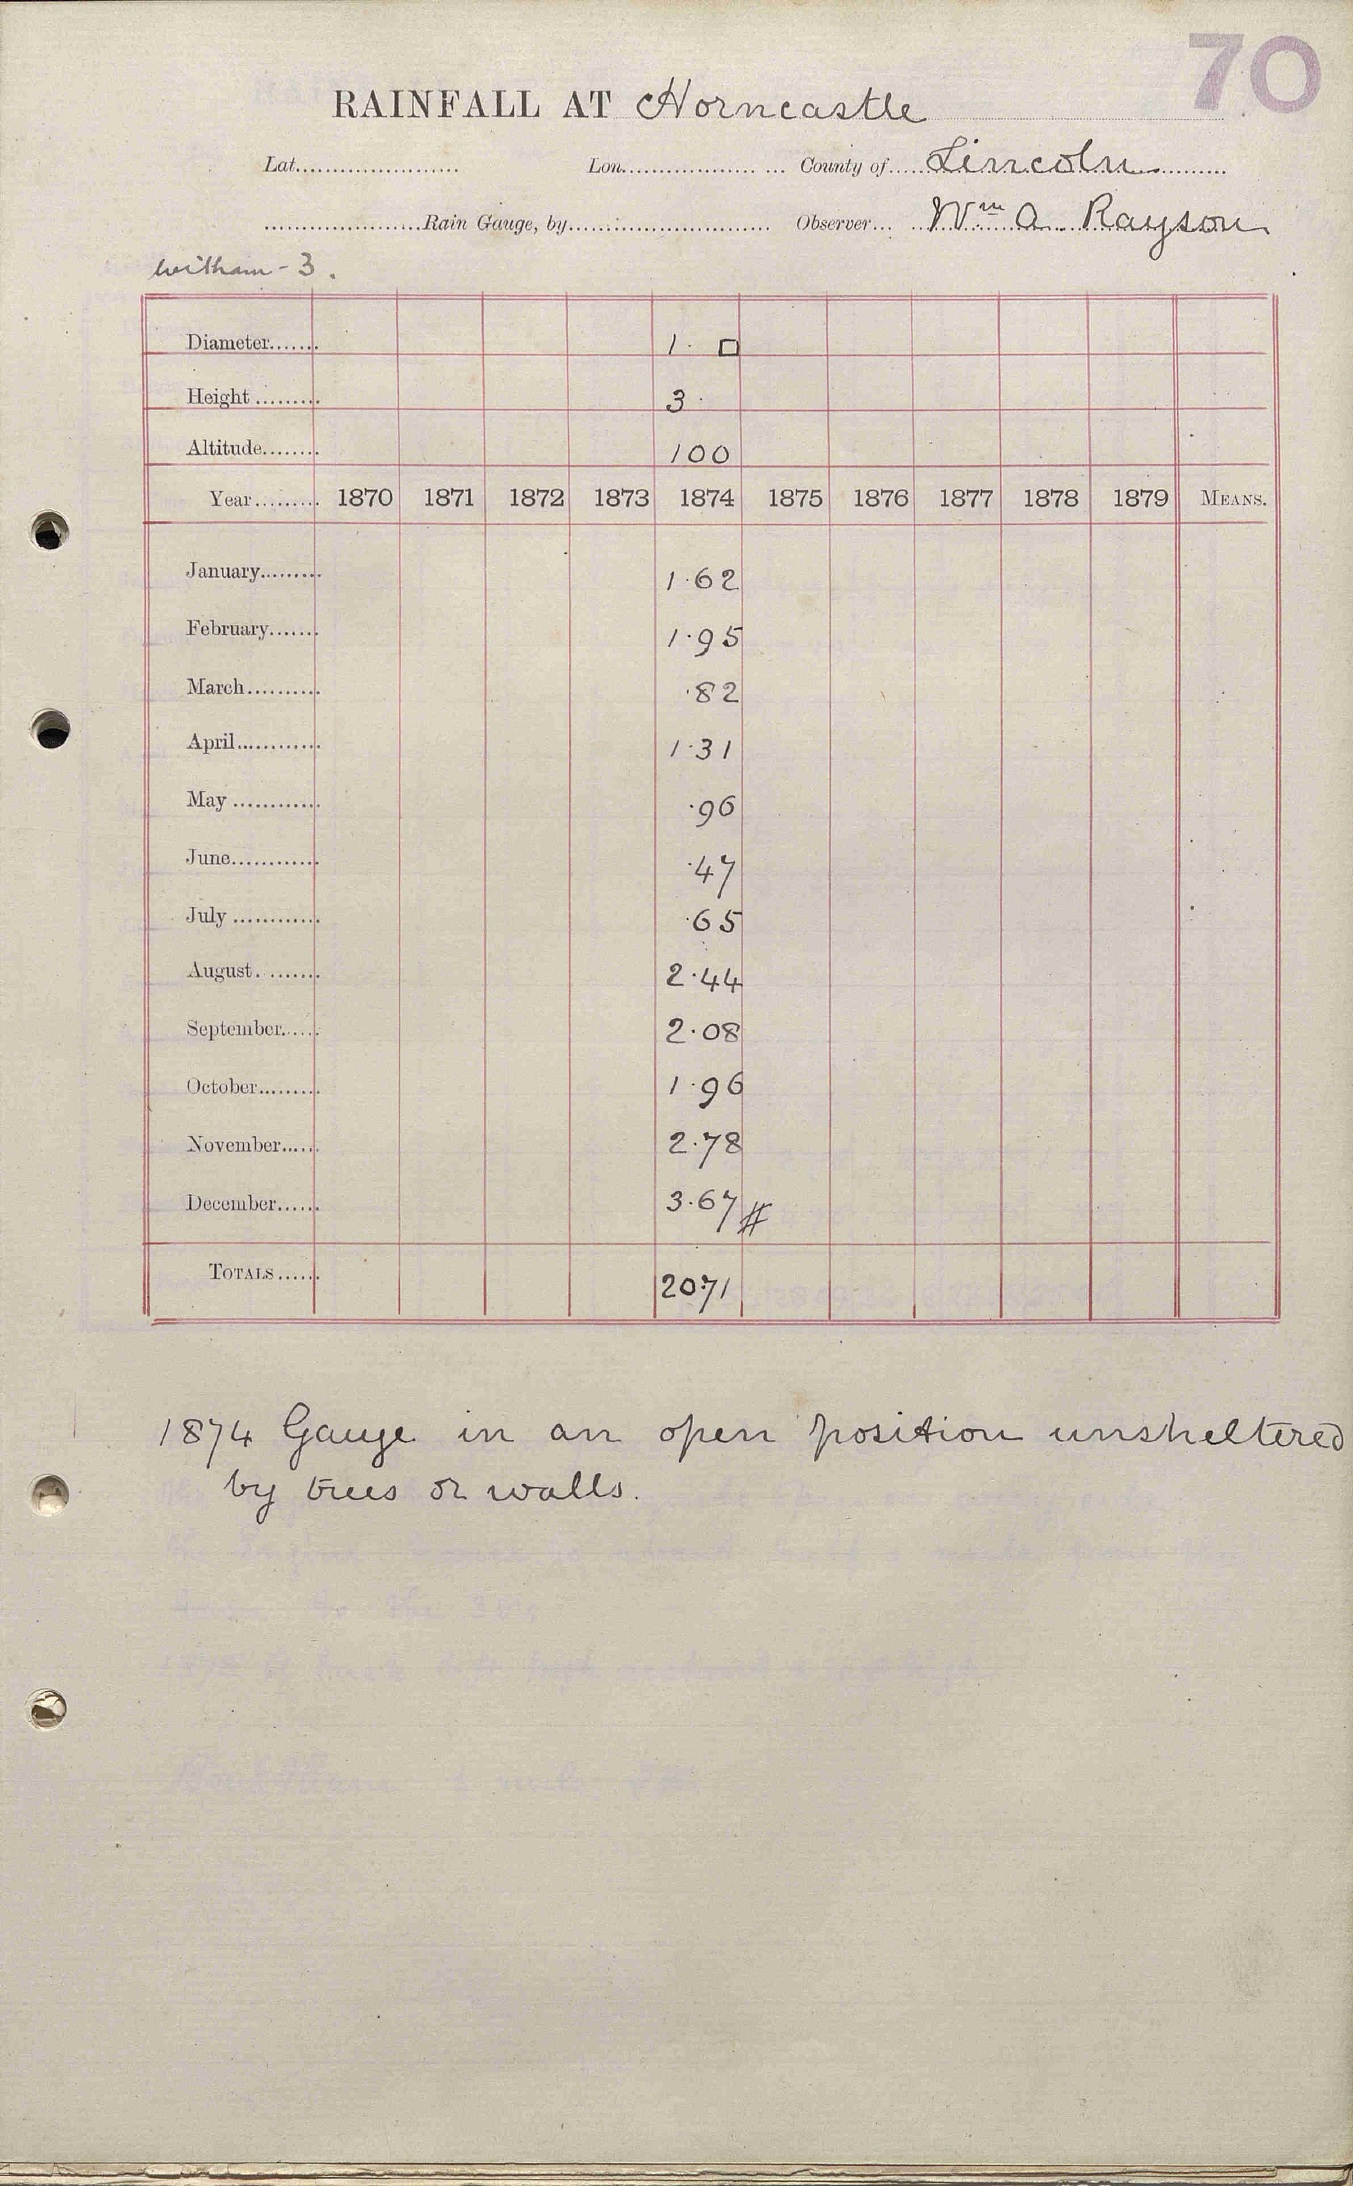 70
RAINFALL AT Horncastle
Lat...................... Lon..................... County of.....Lincoln
......................Rain Gauge, by............................ Observer... Wm A. Rayson
Witham - 3.
Diameter....... 1. □
Height......... 3.
Altitude........ 100
Year......... 1870 1871 1872 1873 1874 1875 1876 1877 1878 1879 MEANS.
January......... 1.62
February....... 1.95
March.......... .82
April............ 1.31
May ............ .96
June............ .47
July ............ .65
August. ....... 2.44
September..... 2.08
October......... 1.96
November..... 2.78
December...... 3.67 #
TOTALS...... 20.71
1874 Gauge in an open position unsheltered
by trees or walls.